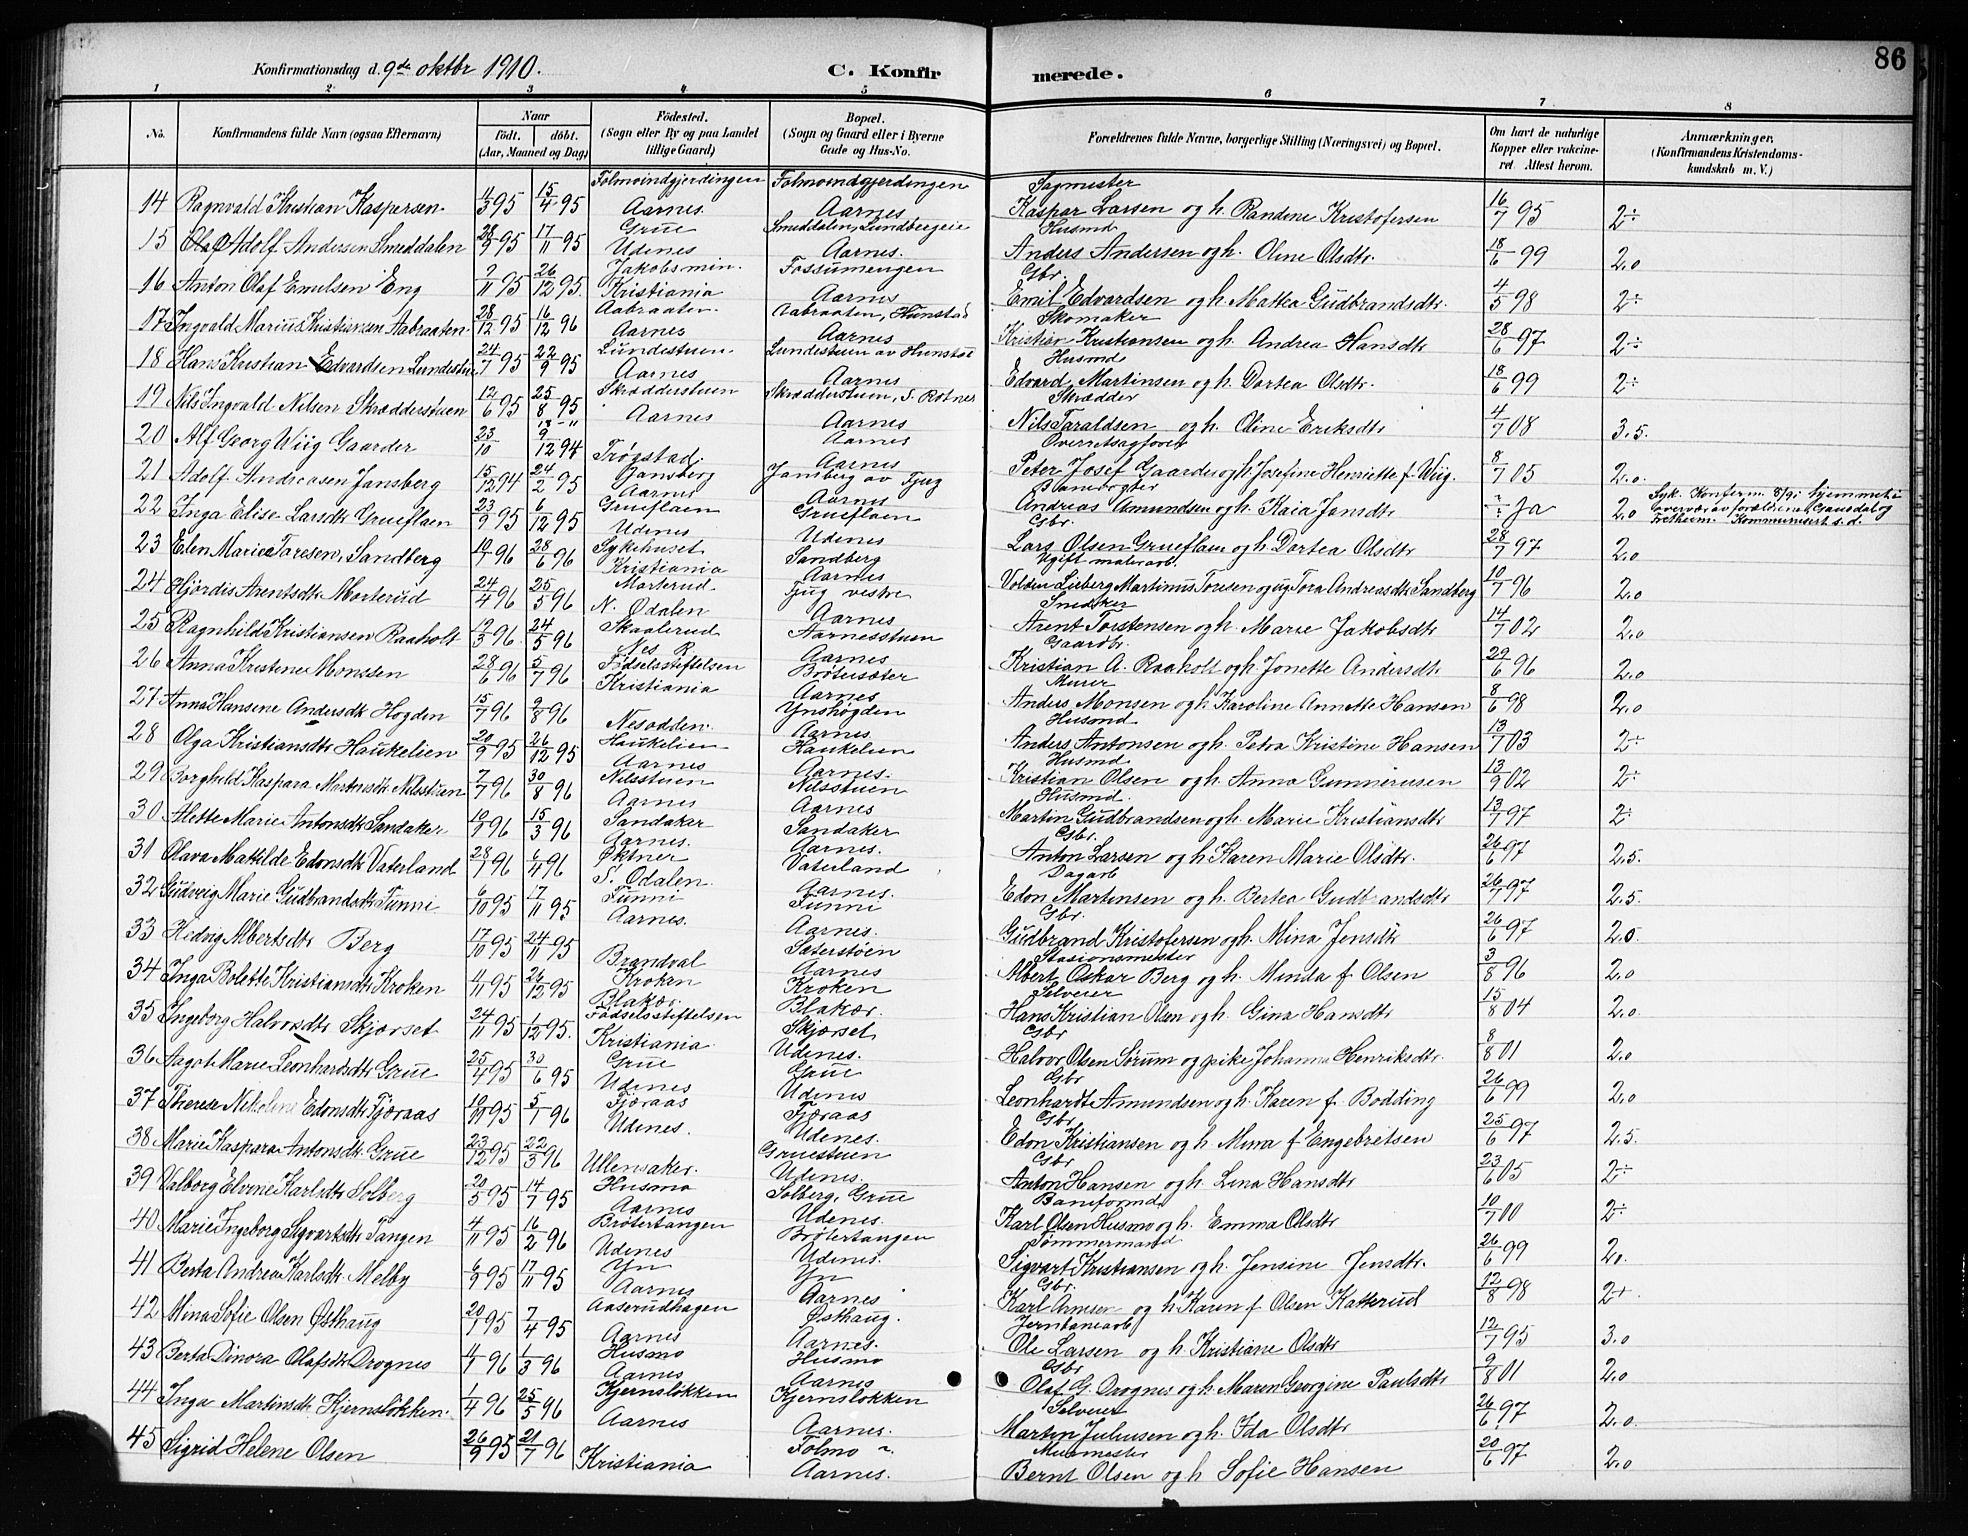 86
Konfirmationsdag d. 9de oktbr 1910.
C. Konfirmerede.
1 2 3 4 5 6 7 8
No. Konfirmandens fulde Navn (ogsaa Efternavn) Naar født. døbt. (Aar, Maaned og Dag) Fødested. (Sogn eller By og paa Landet tillige Gaard) Bopæl. (Sogn og Gaard eller i Byerne Gade og Hus-No. Forældrenes fulde Navne, borgerlige Stilling (Næringsvei) og Bopæl. Om havt de naturlige Kopper eller vakcineret. Attest herom. Anmærkninger, (Konfirmandens Kristendomskundskab m. V.)
14 Ragnvald Kristian Kaspersen 4/3 95 15/4 95 Folmoindgjerdingen Aarnes Folmoindgjerdingen Aarnes Sagmester Kaspar Larsen og h. Randine Kristofersen 16/7 95 2÷
15 Olaf Adolf Andersen Smeddalen 28/9 95 17/11 95 Grue Udenes Smeddalen, Lundbergeie Aarnes. Husmd Anders Andersen og h. Oline Olsdtr. 18/6 99 2,0
16 Anton Olaf Emilsen Eng 2/11 95 26/12 95. Jakobs min. Kristiania Fossumengen Aarnes Gbr. Emil Edvardsen og h. Mattea Gudbrandsdtr. 4/5 98 2÷
17 Ingvald Marius Kristiansen Aabraaten 28/12 95 16/12 96 Aabraaten Aarnes Aabraaten, Hunstad Aarnes Skomaker Kristian Kristiansen og h. Andrea Hansdtr 28/6 97 2÷
18 Hans Kristian Edvardsen Lundestuen 24/7 95 22/9 95 Lundestuen Aarnes Lundestuen av Hunstad Aarnes Husmd Edvard Martinsen og h. Dortea Olsdtr. 18/6 99 2÷
19 Nils Ingvald Nilsen Skræddersuen 12/6 95 25/8 95 Skrædderstuen Aarnes Skrædderstuen, S. Rotnes Aarnes Skrædder Nils Taraldsen og h. Oline Eriksdtr 4/7 08 3.5.
20 Alf Georg Wiig Gaarder 23/10 9/12 94 Trøgstad. Aarnes Aarnes Overretsagfører Peter Josef Gaarder og h. Josefine Henriette f. Wiig. 8/7 05 2,0
21 Adolf Andreasen Jansberg 15/12 94 24/2 95 Jansberg Aarnes Jansberg av Fjug Aarnes Banevogter Andreas Amundsen og h. Kaia Jansdtr ÷ Ja 2,0 Syk. Konferm. 8/9 i hjemmet i overvær av forældrene, Gausdal og Fretheim. Kommunicert s.d.
22 Inga Elise Larsdtr Grueflaen 23/9 95 6/12 95 Grueflaen Udenes Grueflaen Udenes Gbr. Lars Olsen Grueflaen og h. Dortea Olsdtr 28/7 97 2,0
23 Elen Marie Toresen, Sandberg 10/1 96 28/6 96 Sykehuset Kristiania Sandberg Aarnes Ugift malerarb. Martinus Toresen og ug Tora Andreasdtr Sandberg 10/7 96 2,0
24 Hjørdis Arentsdtr Morterud 24/4 96 25/5 96 Morterud N. Odalen Fjug vestre Aarnes Snedker Arent Torstensen og h. Marie Jakobsdtr 14/7 02 2,0
25 Ragnhild Kristiansen Raaholt 12/3 96 24/5 96 Skaalerud Nes R. Aarnesstuen Aarnes Gaardbr. Kristian A. Raaholt og h. Jonette Andersdtr 29/6 96 2,0
26 Anna Kristine Monssen 28/6 96 5/7 96 Fødselsstiftelsen Kristiania Brøtesæter Aarnes Murer Anders Monsen og h. Karoline Annette Hansen 8/6 98 2,0
27 Anna Hansine Andersdtr Høgden 15/7 96 9/8 96 Nesodden. Ynshøgden Aarnes Husmd Anders Antonsen og h. Petra Kristine Hansen 13/7 03 2÷
28 Olga Kristiansdtr Haukelien 20/9 95 26/12 95 Haukelien Aarnes Haukelien Aarnes. Husmd Kristian Olsen og h. Anna Gunnerusen 13/9 02 2÷
29 Borghild Kaspara Martinsdtr Nilsstuen 7/7 96 30/8 96 Nilsstuen Aarnes Nilsstuen Aarnes Husmd. Martin Gudbrandsen og h. Marie Kristiansdtr 13/7 97 2÷
30 Alette Marie Antonsdtr Sandaker 10/1 96 15/3 96 Sandaker Aarnes. Sandaker Aarnes. Gbr. Anton Larsen og h. Karen Marie Olsdtr. 26/6 97 2.5.
31 Olava Matilde Edonsdtr Vaterland 28/1 96 6/4 96 Øktner S. Odalen Vaterland Aarnes. Dagarb Edon Martinsen og h. Bertea Gudbrandsdtr 26/7 97 2.5.
32 Gudveig Marie Gudbrandsdtr Funni 6/10 95 17/11 95 Funni Aarnes. Funni Aarnes. Gbr. Gudbrand Kristofersen og h. Mina Jensdtr 26/6 97 2,0.
33 Hedvig Albertsdtr Berg 17/10 95 24/11 95 Brandval Sæterstøen Aarnes Stasionsmester Albert Oskar Berg og h. Minda f. Olsen 3/8 96 2,0
34 Inga Bolette Kristiansdtr Kroken 4/11 95 26/12 95 Kroken Blakær. Kroken Blakær. Selveier Hans Kristian Olsen og h. Gina Hansdtr 15/8 04 2,0.
35 Ingeborg Halvorsdtr Skjørset 24/11 95 1/12 95. Fødselsstiftelsen Kristiania Skjørset Udenes. Gbr Halvor Olsen Sørum og pike Johanna Henriksdtr. 8/8 01 2,0.
36 Aagot Marie Leonhardsdtr Grue 25/4 95 30/6 95 Grue Udenes Grue Udenes Gbr Leonhardt Amundsen og h. Karen f. Bødding 26/6 99 2,0
37 Therese Nikoline Edonsdtr Fjøraas 10/11 95 5/1 96 Fjøraas Udenes. Fjøraas Udenes. Gbr Edon Kristiansen og h. Mina f. Engebretsen 25/6 97 2.5.
38 Marie Kaspara Antonsdtr Grue 23/12 95 22/3 96 Ullensaker. Gruestuen Udenes. Gbr Anton Hansen og h. Lina Hansdtr 23/6 05 2÷
39 Valborg Elvine Karlsdtr Solberg 20/5 95 14/7 95 Husmo Aarnes Solberg, Grue Udenes. Baneformd Karl Olsen Husmo og h. Emma Olsdtr 10/7 00 2÷
40 Marie Ingeborg Sigvartsdtr Tangen 4/11 95 16/2 96 Brøtertangen Udenes Brøtertangen Udenes. Tømmermand Sigvart Kristiansen og h. Jensine Jensdtr. 26/6 99 2,0.
41 Berta Andrea Karlsdtr. Melby 6/9 95 17/11 95 Yn Aarnes Yn Aarnes Gbr. Karl Arnsen og h. Karen f. Olsen Katterud 12/8 98 2+
42 Mina Sofie Olsen Østhaug 20/1 95 7/4 95 Aaserudhagen Aarnes Østhaug. Aarnes. Jernbanearb Ole Larsen og h. Kristiane Olsdtr 12/7 95 3.0
43 Berta Dinora Olafsdtr Drognes 4/1 96 1/3 96 Husmo Aarnes Husmo Aarnes Gbr Olaf G. Drognes og h. Maren Georgine Paulsdtr 9/8 01 2,0
44 Inga Martinsdtr Kjernsløkken 1/4 96 25/5 96 Kjernsløkken Aarnes Kjernsløkken Aarnes. Selveier Martin Juliusen og h. Ida Olsdtr 26/6 97 2,0.
45 Sigrid Helene Olsen 26/9 95 21/7 96 Kristiania Folmo Aarnes. Murmester Bernt Olsen og h. Sofie Hansen 20/6 97 2,0